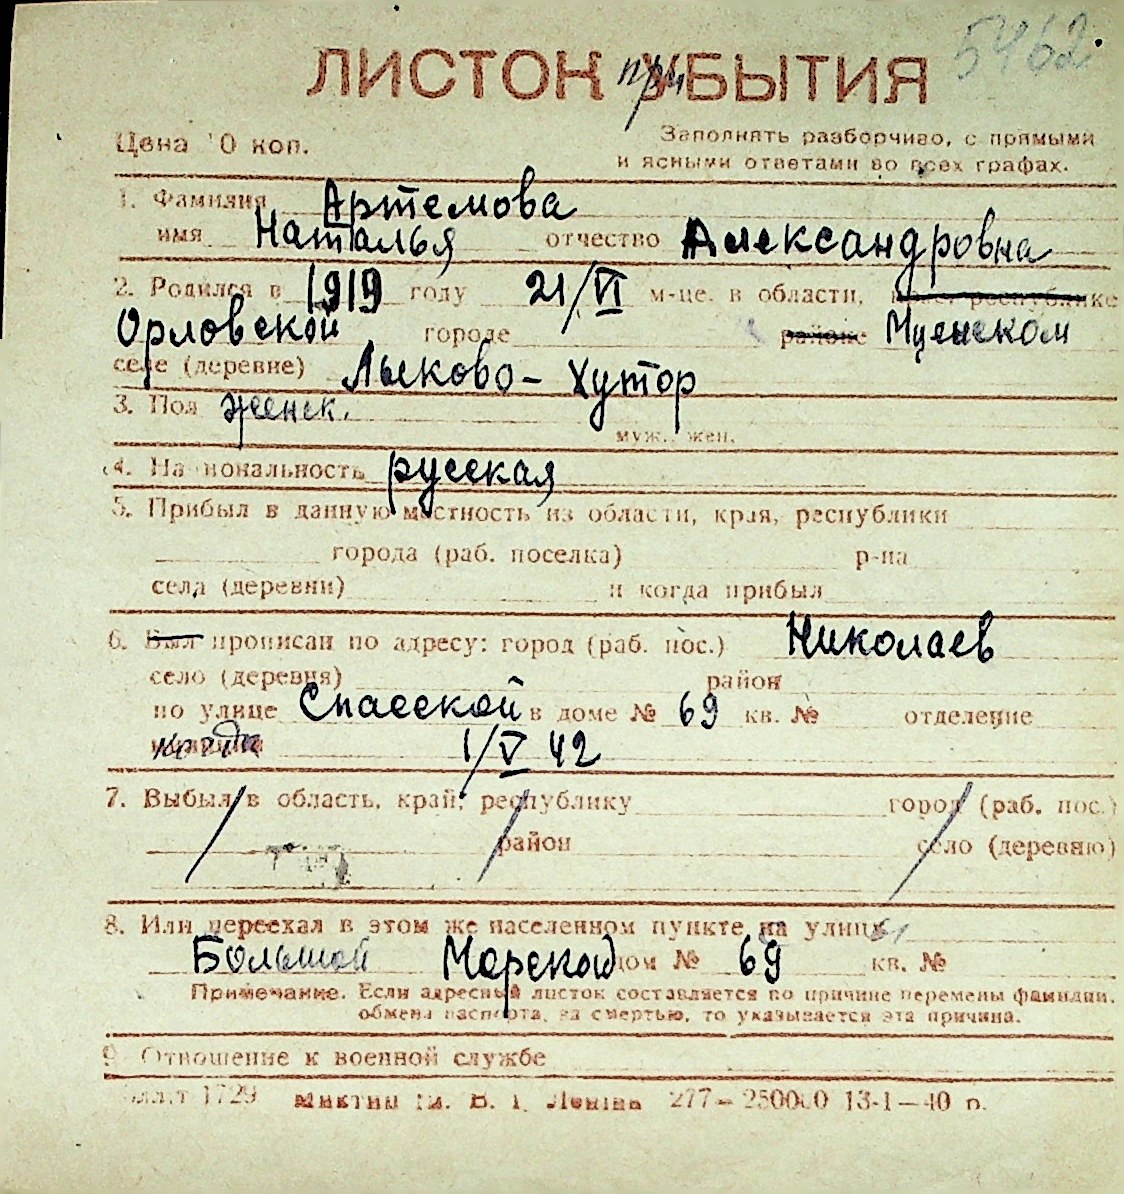 5462
ЛИСТОК прибЫТИЯ
Цена 10 коп.
Заполнять разборчиво, с прямыми
и ясными ответами во всех графах.
1. Фамилия Артемова
имя Наталья отчество Александровна
2. Родился в 1919 году 21/VI м-це. в области, крае республике
Орловской городе районе Мценском
селе (деревне) Лыково – Хутор
3. Пол женск.
муж., жен.
4. Национальность русская
5. Прибыл в данную местность из области, края, республики
города (раб. поселка) р-на
села (деревни) и когда прибыл
6. Был прописан по адресу: город (раб. пос.) Николаев
село (деревня) район
по улице Спасской в доме № 69 кв. № отделение
1/V 42
7. Выбыл в область, край, республику город (раб. пос.)
район село (деревню)
8. Или переехал в этом же населенном пункте на улицу
Большой Морской дом № 69 кв. №
Примечание. Если адресный листок составляется по причине перемены фамилии,
обмена паспорта, за смертью, то указывается эта причина.
9. Отношение к военной службе
1729 им. В. І. Леніна 277—250000 13-1—40 р.